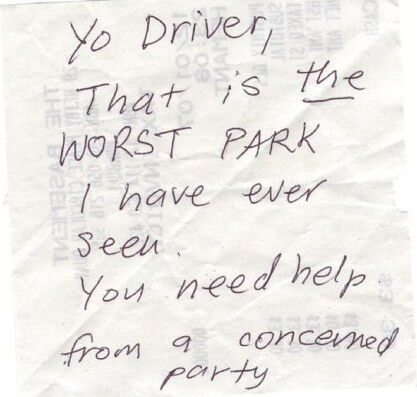 Yo Driver,
That is the
WORST PARK
I have ever
seen.
You need help.
from a concerned
party